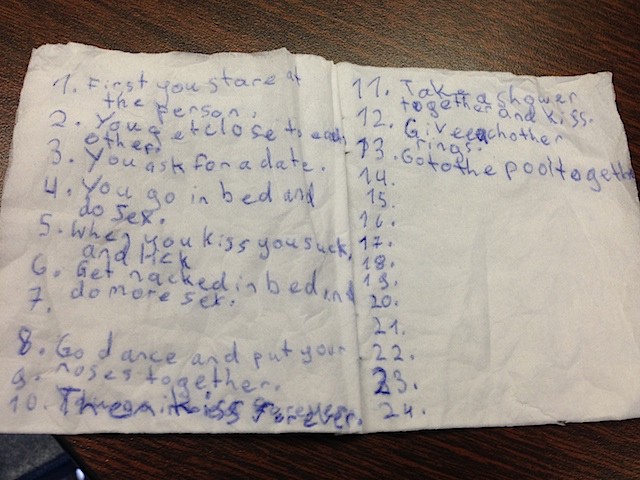 1. First you stare at
the person.
2. You get close to each
other.
3. You ask for a date.
4. You go in bed and
do sex.
5. When you kiss you suck,
and lick
6. Get nacked in bed and
7. do more sex.
8. Go dance and put your
9. noses together.
10. kiss Forever.
11. Take a shower
together and kiss.
12. Give eachother
rings.
13. Go to the pool together
14.
15.
16.
17.
18.
19.
20.
21.
22.
23.
24.